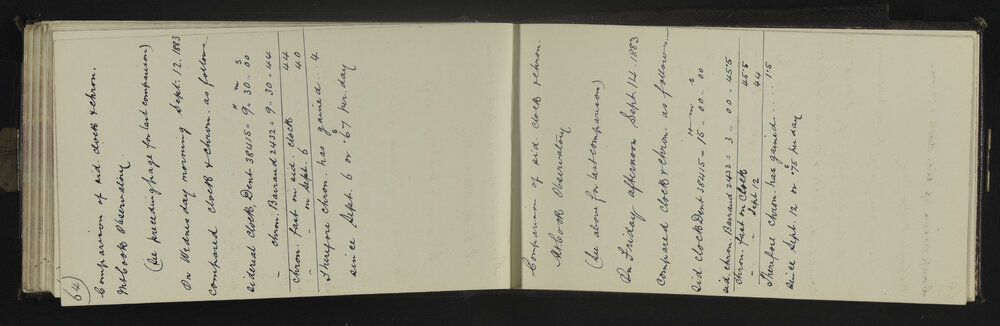 64)
Comparison of sid clock & chron.
Mt Cook Observatory.
(See preceding page for last comparison)
On Wednesday morning Sept. 12. 1883
compared clock & chron. as follows.
H m s
sidereal clock, Dent 38415 = 9 .. 30 .. 00
" chron. Barraud 2432 = 9 .. 30 .. 44
chron. fast on sid. clock 44
" " " on Sept. 6 40
Therefore chron. has gained ... 4
since Sept. 6 or ·67 s per. day
Comparison of sid clock & chron.
Mt Cook Observatory
(See above for last comparison)
On Friday afternoon Sept. 14. 1883
compared clock & chron as follows.
H m s
Sid clock Dent 38415 = 15 .. 00 .. 00
sid chron. Barraud 2432 = 3 .. 00 .. 45·5
Chron. fast on Clock 45·5
" " " Sept 12 44
Therefore chron. has gained ..... 1·5
since Sept. 12 or ·75 s per day